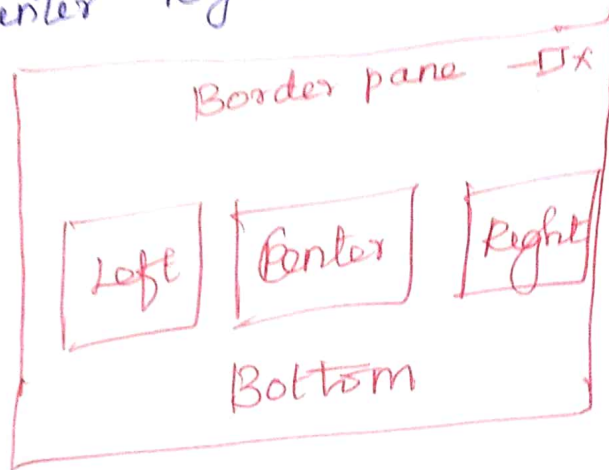 enter
Border pane -□×
Left Center Right
Bottom